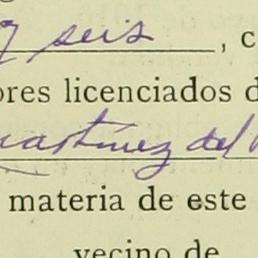 y seis, c
ores licenciados d
Martínez del
materia de este
vecino de